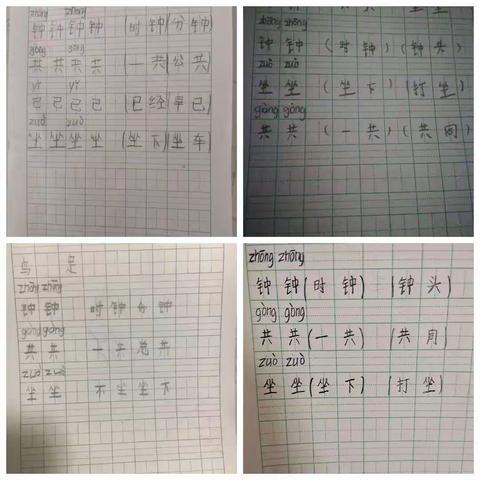 zhōng zhōng
钟 钟 钟 钟 (时 钟)(分 钟)
gòng gòng
共 共 共 共 (一 共)(公 共)
yǐ yǐ
已 已 已 已 (已 经)(早 已)
zuò zuò
坐 坐 坐 坐 (坐 下)(坐 车)
zhōng zhōng
钟 钟 (时 钟)(钟 头)
zuò zuò
坐 坐 (坐 下)(打 坐)
gòng gòng
共 共 (一 共)(共 同)
鸟 足
zhōng zhōng
钟 钟 时 钟 分 钟
gòng gòng
共 共 一 共 总 共
zuò zuò
坐 坐 坐 坐 下
zhōng zhōng
钟 钟(时 钟) (钟 头)
gòng gòng
共 共(一 共) (共 同)
zuò zuò
坐 坐(坐 下) (打 坐)